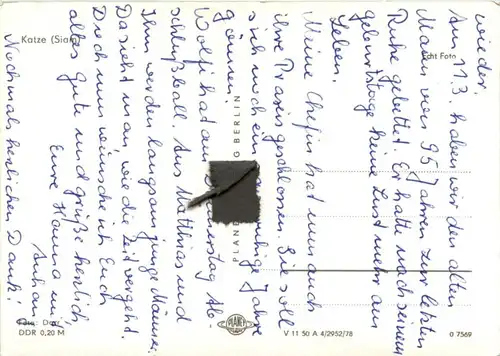 wieder.
Am 11.3. haben wir den alten
Mann von 95 Jahren zur letzten
Ruhe gebettet. Er hatte nach seinem
Geburtstage keine Lust mehr am
Leben.
Meine Chefin hat nun auch
ihre Praxis geschlossen. Sie soll
sich noch ein paar ruhige Jahre
gönnen.
Wolfi hat am Donnerstag Ab-
schlußball. Aus Matthias und
Ihm werden langsam junge Männer.
Da sieht man, wie die Zeit vergeht.
Doch nun wünsche ich Euch
alles Gute und grüße herzlich
Eure Hanna mit
Anhang
Nochmals herzlichen Dank!
Katze (Siam)
Echt Foto
PLAN
G BERLIN
Foto:
DDR 0,20 M
PLANET
V 11 50 A 4/2952/78
o 7569